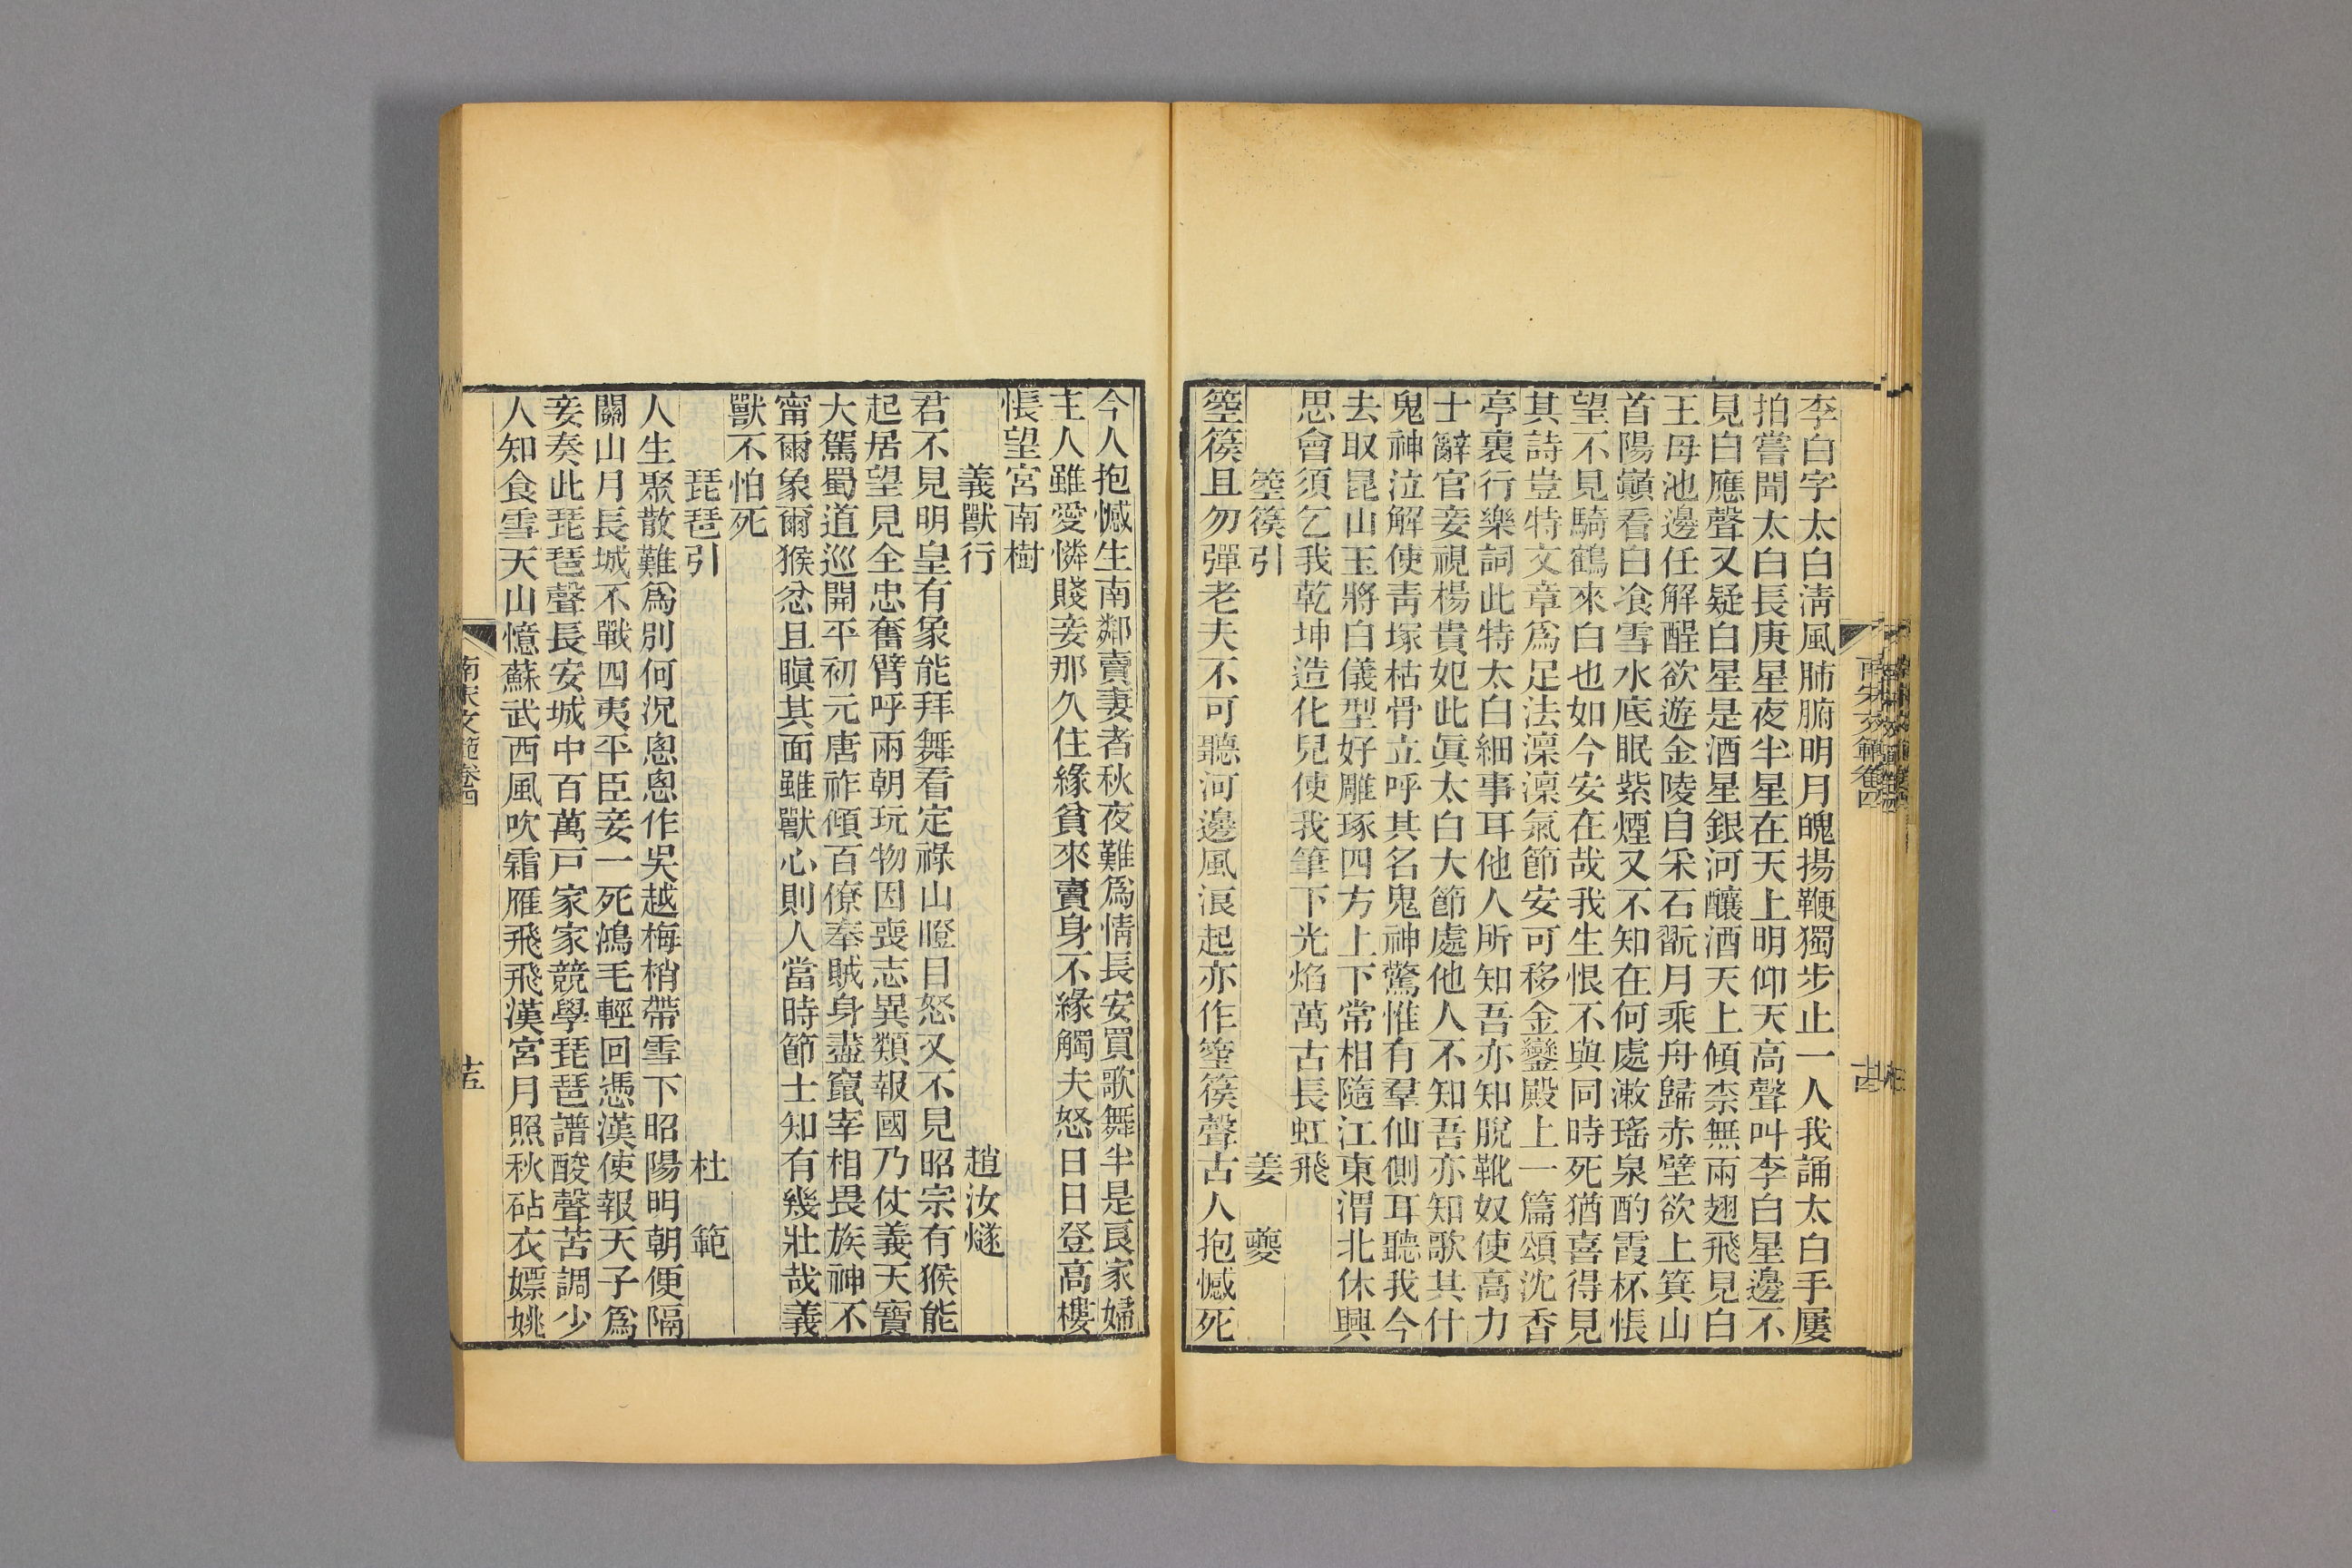 李白字太白清風肺腑明月魄揚鞭獨步止一人我誦太白手屢
拍嘗聞太白長庚星夜半星在天上明仰天高聲叫李白星邊不
見白應聲又疑白星是酒星銀河釀酒天上傾柰無兩翅飛見白
王母池邊任解酲欲遊金陵自采石翫月乘舟歸赤壁欲上箕山
首陽巔看白飡雪水底眠紫煙又不知在何處漱瑤泉酌霞杯悵
望不見騎鶴來白也如今安在哉我生恨不與同時死猶喜得見
其詩豈特文章爲足法凜凜氣節安可移金鑾殿上一篇頌沈香
亭裏行樂詞此特太白細事耳他人所知吾亦知脫靴奴使高力
士辭官妾視楊貴妃此眞太白大節處他人不知吾亦知歌其什
鬼神泣解使靑塚枯骨立呼其名鬼神驚惟有羣仙側耳聽我今
去取昆山玉將白儀型好雕琢四方上下常相隨江東渭北休興
思會須乞我乾坤造化兒使我筆下光焰萬古長虹飛
箜篌引 姜夔
箜篌且勿彈老夫不可聽河邊風浪起亦作箜篌聲古人抱憾死
今人抱憾生南鄰賣妻者秋夜難爲情長安買歌舞半是良家婦
主人雖愛憐賤妾那久住緣貧來賣身不緣觸夫怒日日登高樓
悵望宮南樹
義獸行 趙汝燧
君不見明皇有象能拜舞看定祿山瞪目怒又不見昭宗有猴能
起居望見全忠奮臂呼兩朝玩物因喪志異類報國乃仗義天寶
大駕蜀道巡開平初元唐祚傾百僚奉賊身盡竄宰相畏族神不
甯爾象爾猴忿且瞋其面雖獸心則人當時節士知有幾壯哉義
獸不怕死
琵琶引 杜範
人生聚散難爲別何況悤悤作吳越梅梢帶雪下昭陽明朝便隔
關山月長城不戰四夷平臣妾一死鴻毛輕回憑漢使報天子爲
妾奏此琵琶聲長安城中百萬戶家家競學琵琶譜酸聲苦調少
人知食雪天山憶蘇武西風吹霜雁飛飛漢宮月照秋砧衣嫖姚
南宋文範卷四